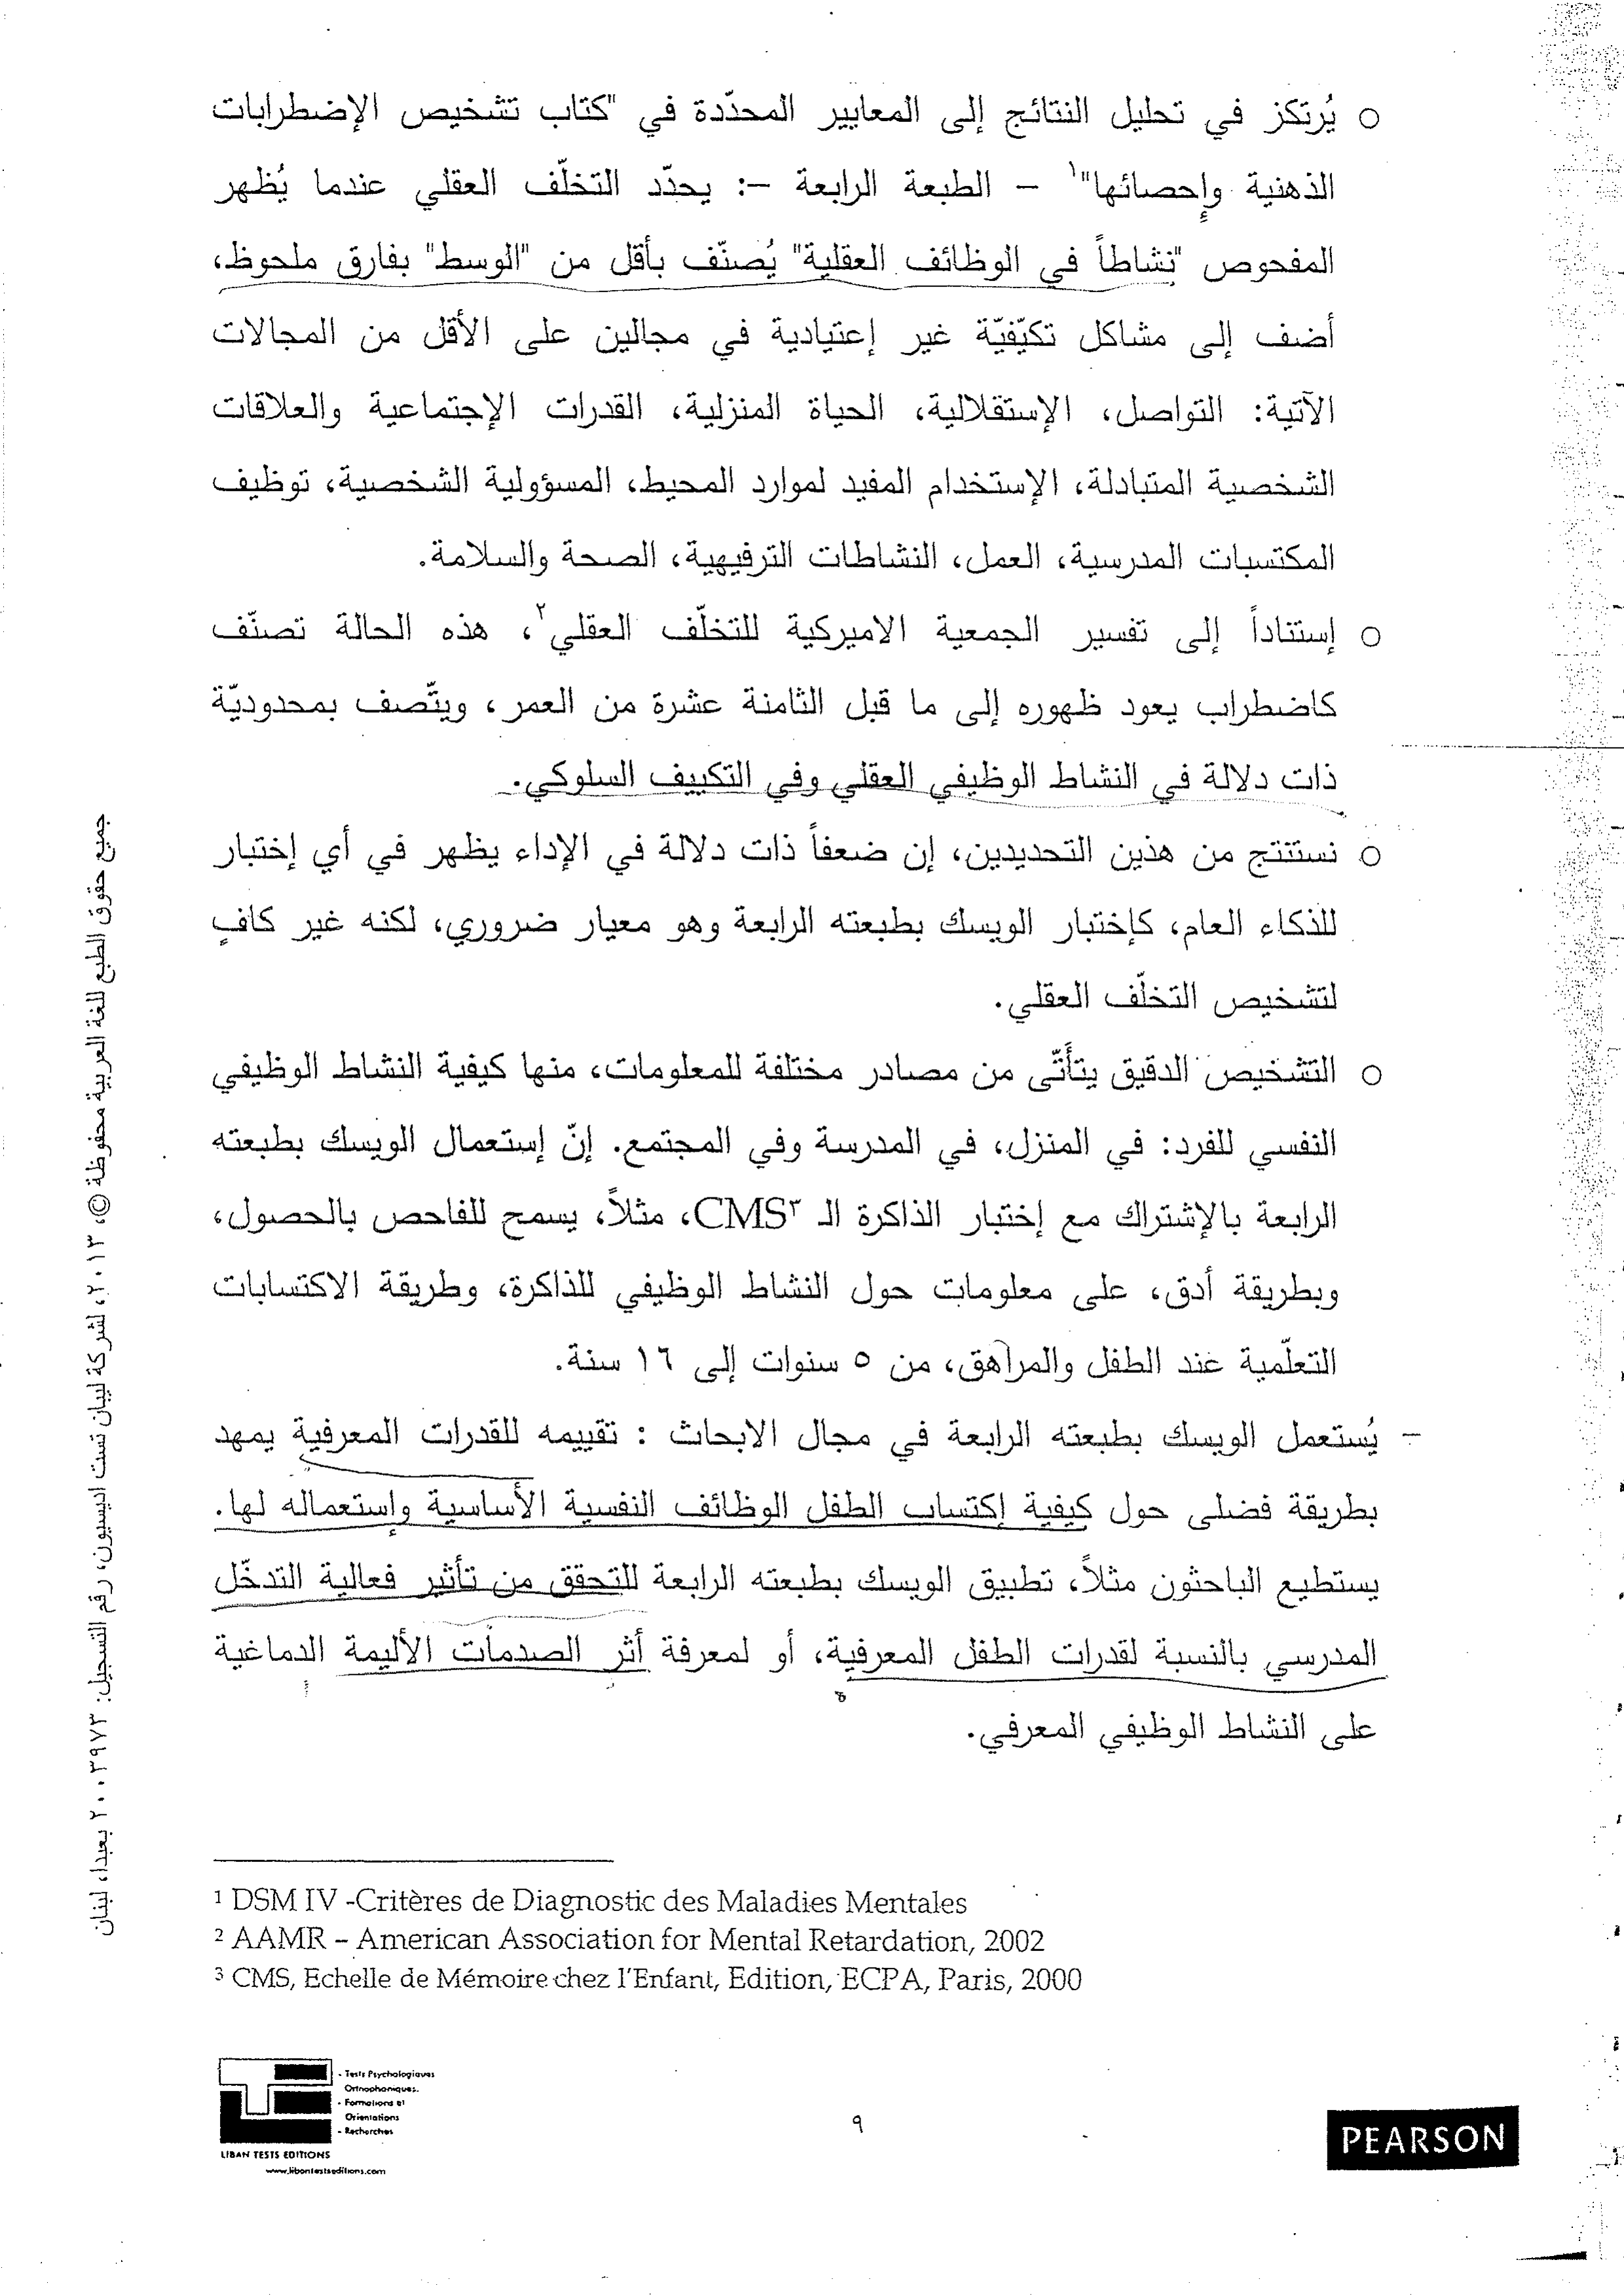 ○ يُرتكز في تحليل النتائج إلى المعايير المحدّدة في "كتاب تشخيص الإضطرابات
الذهنية وإحصائها"١ – الطبعة الرابعة –: يحدّد التخلّف العقلي عندما يُظهر
المفحوص "نشاطاً في الوظائف العقلية" يُصنّف بأقل من "الوسط" بفارق ملحوظ،
أضف إلى مشاكل تكيّفيّة غير إعتيادية في مجالين على الأقل من المجالات
الآتية: التواصل، الإستقلالية، الحياة المنزلية، القدرات الإجتماعية والعلاقات
الشخصية المتبادلة، الإستخدام المفيد لموارد المحيط، المسؤولية الشخصية، توظيف
المكتسبات المدرسية، العمل، النشاطات الترفيهية، الصحة والسلامة.
○ إستناداً إلى تفسير الجمعية الاميركية للتخلّف العقلي٢، هذه الحالة تصنّف
كاضطراب يعود ظهوره إلى ما قبل الثامنة عشرة من العمر، ويتّصف بمحدوديّة
ذات دلالة في النشاط الوظيفي العقلي وفي التكييف السلوكي.
○ نستنتج من هذين التحديدين، إن ضعفاً ذات دلالة في الإداء يظهر في أي إختبار
للذكاء العام، كإختبار الويسك بطبعته الرابعة وهو معيار ضروري، لكنه غير كافٍ
لتشخيص التخلّف العقلي.
○ التشخيص الدقيق يتأتّى من مصادر مختلفة للمعلومات، منها كيفية النشاط الوظيفي
النفسي للفرد: في المنزل، في المدرسة وفي المجتمع. إنّ إستعمال الويسك بطبعته
الرابعة بالإشتراك مع إختبار الذاكرة الـ CMS٣، مثلاً، يسمح للفاحص بالحصول،
وبطريقة أدق، على معلومات حول النشاط الوظيفي للذاكرة، وطريقة الاكتسابات
التعلّمية عند الطفل والمراهق، من ٥ سنوات إلى ١٦ سنة.
– يُستعمل الويسك بطبعته الرابعة في مجال الابحاث : تقييمه للقدرات المعرفية يمهد
بطريقة فضلى حول كيفية إكتساب الطفل الوظائف النفسية الأساسية وإستعماله لها.
يستطيع الباحثون مثلاً، تطبيق الويسك بطبعته الرابعة للتحقق من تأثير فعالية التدخّل
المدرسي بالنسبة لقدرات الطفل المعرفية، أو لمعرفة أثر الصدمات الأليمة الدماغية
على النشاط الوظيفي المعرفي.
1 DSM IV -Critères de Diagnostic des Maladies Mentales
2 AAMR – American Association for Mental Retardation, 2002
3 CMS, Echelle de Mémoire chez l'Enfant, Edition, ECPA, Paris, 2000
- Tests Psychologiques
Orthophoniques.
- Formations et
Orientations
- Recherches
LIBAN TESTS EDITIONS
www.libantestseditions.com
٩
PEARSON
جميع حقوق الطبع للغة العربية محفوظة ©، ٢٠١٣، لشركة ليبان تست اديسيون، رقم التسجيل: ٢٠٠٣٩٧٣ بعبدا، لبنان